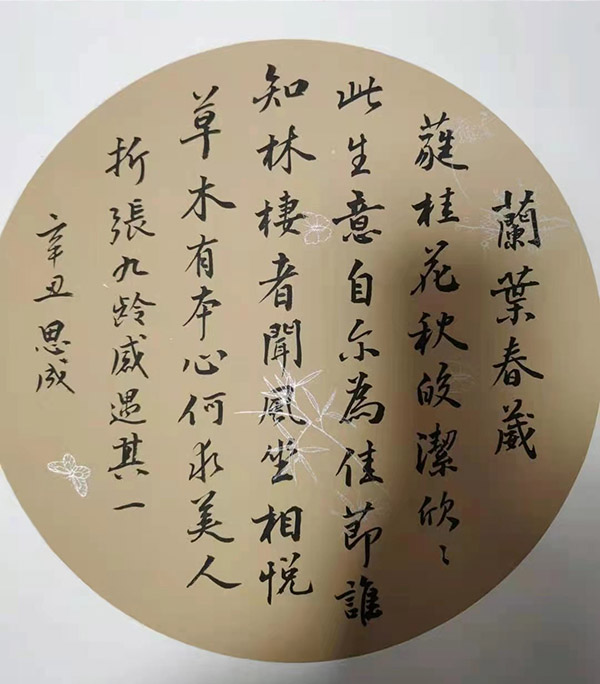 蘭葉春葳
蕤桂花秋皎潔欣〻
此生意自尔為佳節誰
知林棲者聞風坐相悅
草木有本心何求美人
折張九龄感遇其一
辛丑思成